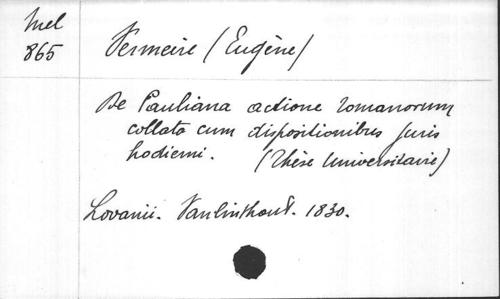 Mel
865
Vermeire (Eugène)
De Pauliana actione romanorum
collata cum dispositionibus juris
hodierni. (Thèse Universitaire)
Lovanii. Vanlinthout. 1830.